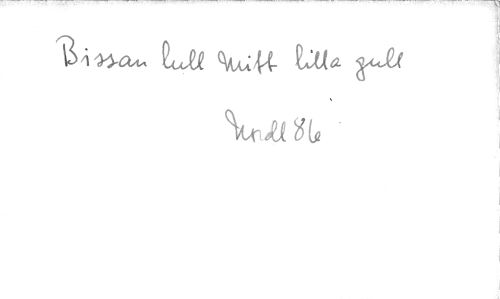 Bissan lull mitt lilla gull
Nordl 86